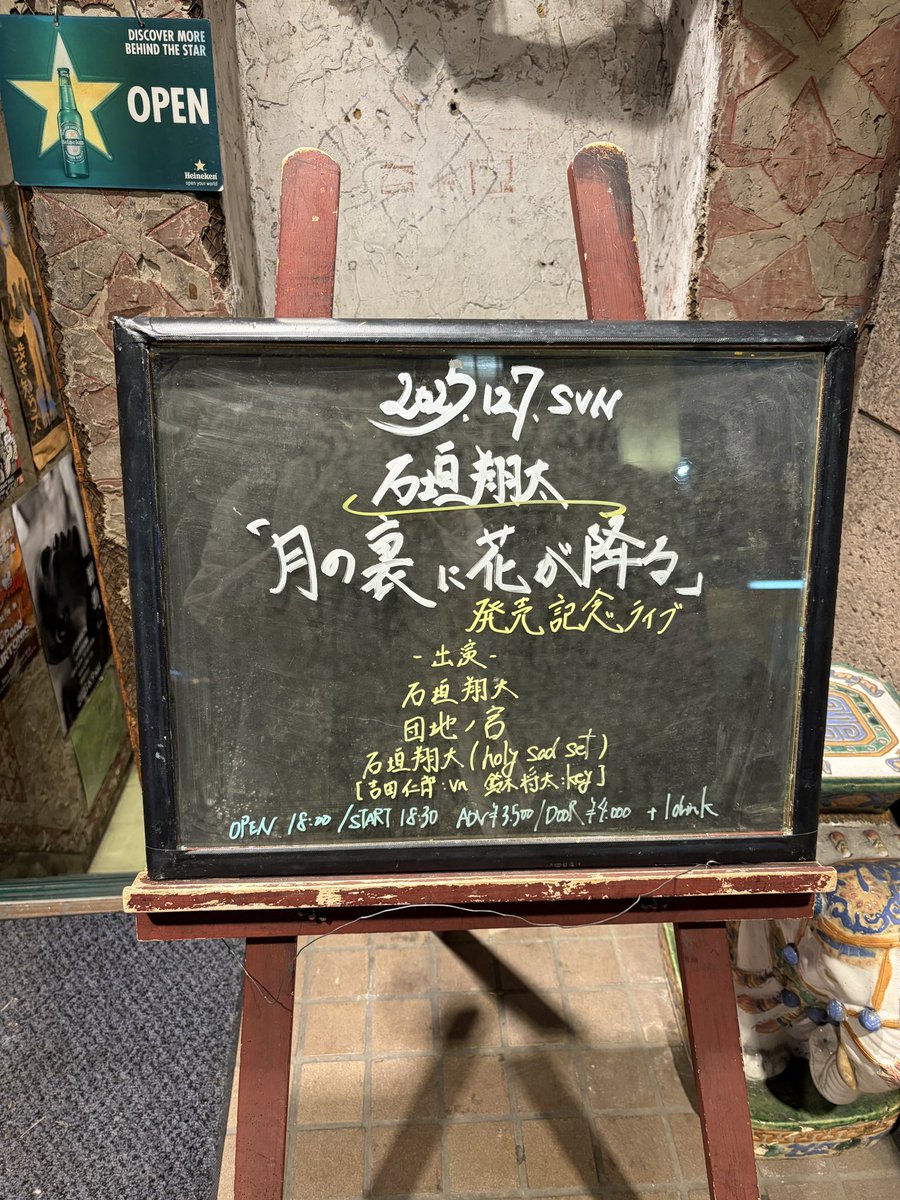 DISCOVER MORE
BEHIND THE STAR
OPEN
Heineken
open your world
2025.12.7. SUN
石垣翔太
「月の裏に花が降る」
発売記念ライブ
-出演-
石垣翔太
団地ノ宮
石垣翔太(holy sad set)
[吉田仁郎:vn 鈴木将太:key]
OPEN 18:00 /START 18:30 ADV ¥3500/DOOR ¥4.000 +1drink